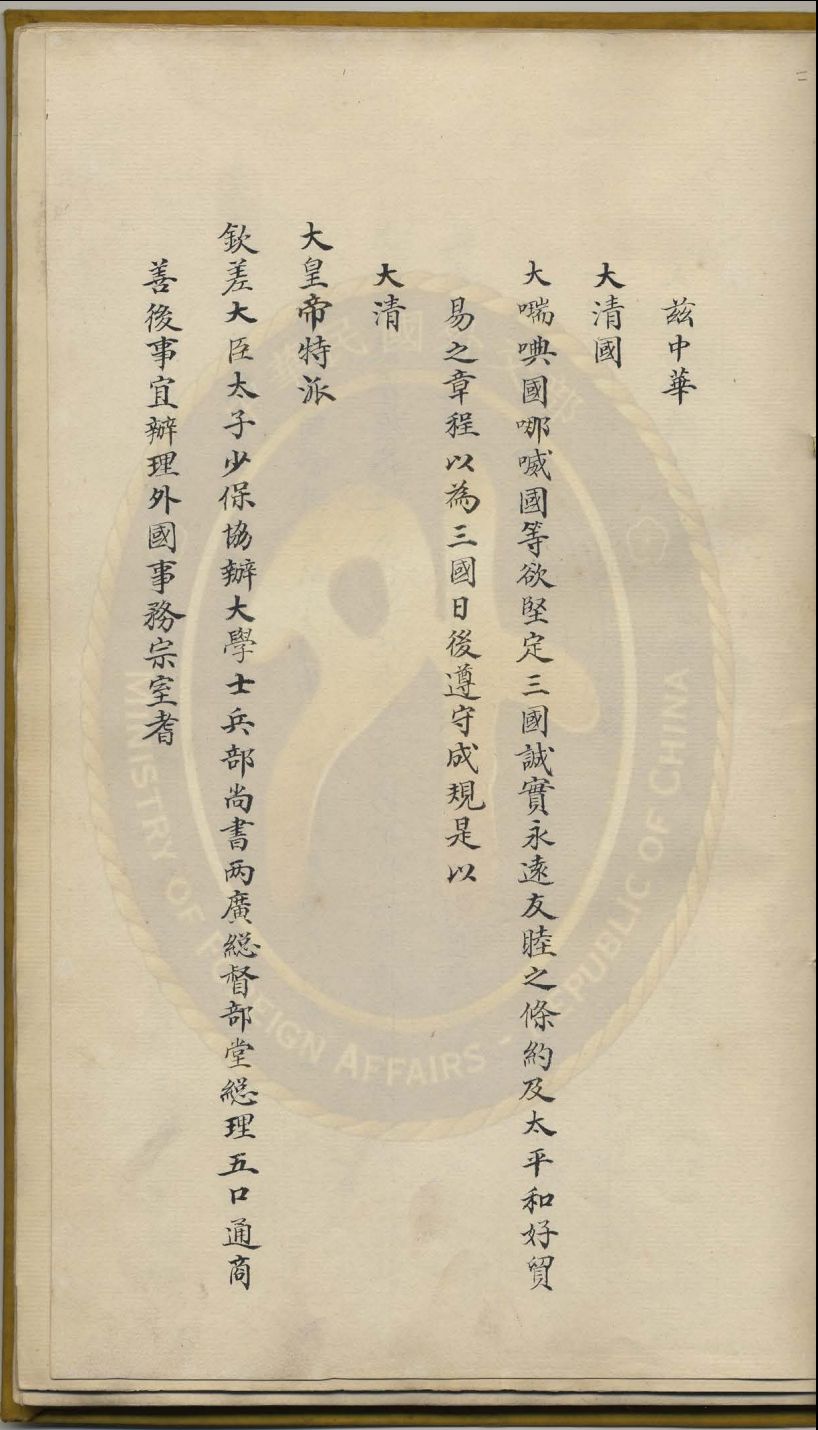 茲中華
大清國
大㗨㖠國哪㖪國等欲堅定三國誠實永遠友睦之條約及太平和好貿
易之章程以為三國日後遵守成規是以
大清
大皇帝特派
欽差大臣太子少保協辦大學士兵部尚書兩廣總督部堂總理五口通商
善後事宜辦理外國事務宗室耆
MINISTRY OF FOREIGN AFFAIRS · REPUBLIC OF CHINA